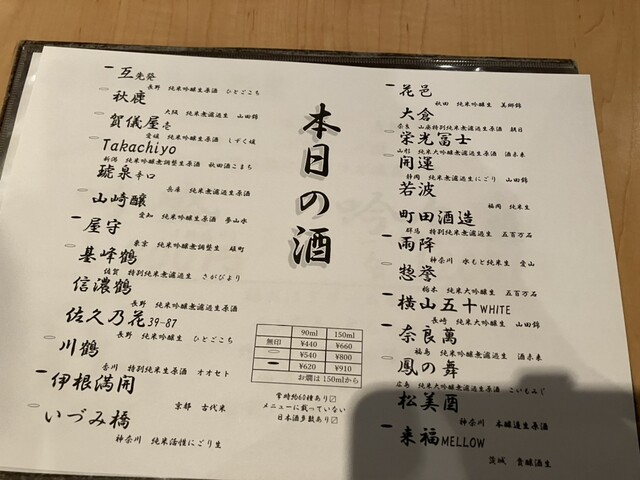 本日の酒
互先発
長野 純米吟醸生原酒 ひとごこち
秋鹿
大阪 純米無濾過生 山田錦
賀儀屋壱
愛媛 純米無濾過生原酒 しずく媛
Takachiyo
新潟 純米吟醸無調整生原酒 秋田酒こまち
琥泉辛口
兵庫 純米無濾過生原酒
山崎醸
愛知 純米吟醸生原酒 夢山水
屋守
東京 純米吟醸無調整生 雄町
基峰鶴
佐賀 特別純米無濾過生 さがびより
信濃鶴
長野 純米吟醸無濾過生原酒
佐久乃花39-87
長野 純米吟醸生 ひとごこち
川鶴
香川 特別純米生原酒 オオセト
伊根満開
京都 古代米
いづみ橋
神奈川 純米活性にごり生
花邑
秋田 純米吟醸生 美郷錦
大倉
奈良 山廃特別純米無濾過生原酒 朝日
栄光冨士
山形 純米大吟醸無濾過生原酒 酒未来
開運
静岡 純米無濾過生にごり 山田錦
若波
福岡 純米生
町田酒造
群馬 特別純米無濾過生 五百万石
雨降
神奈川 水もと純米生 愛山
惣誉
栃木 純米大吟醸生 五百万石
横山五十WHITE
長崎 純米大吟醸生 山田錦
奈良萬
福島 純米吟醸無濾過生 酒未来
鳳の舞
広島 純米大吟醸無濾過生原酒 こいもみじ
松美酉
神奈川 本醸造生原酒
来福MELLOW
茨城 貴醸酒生
90ml 150ml
無印 ¥440 ¥660
¥540 ¥800
¥620 ¥910
お燗は150mlから
常時約60種あり〼
メニューに載っていない
日本酒多数あり〼